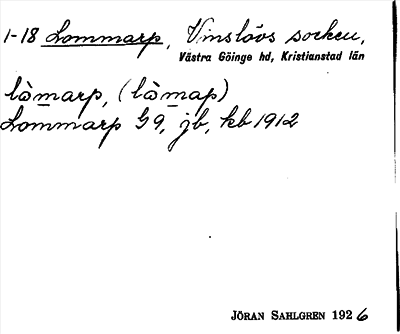 1-18 Lommarp, Vinslövs socken,
Västra Göinge hd, Kristianstad län
låmarp, (låmap)
Lommarp G 9, jb, kb 1912
JÖRAN SAHLGREN 1926